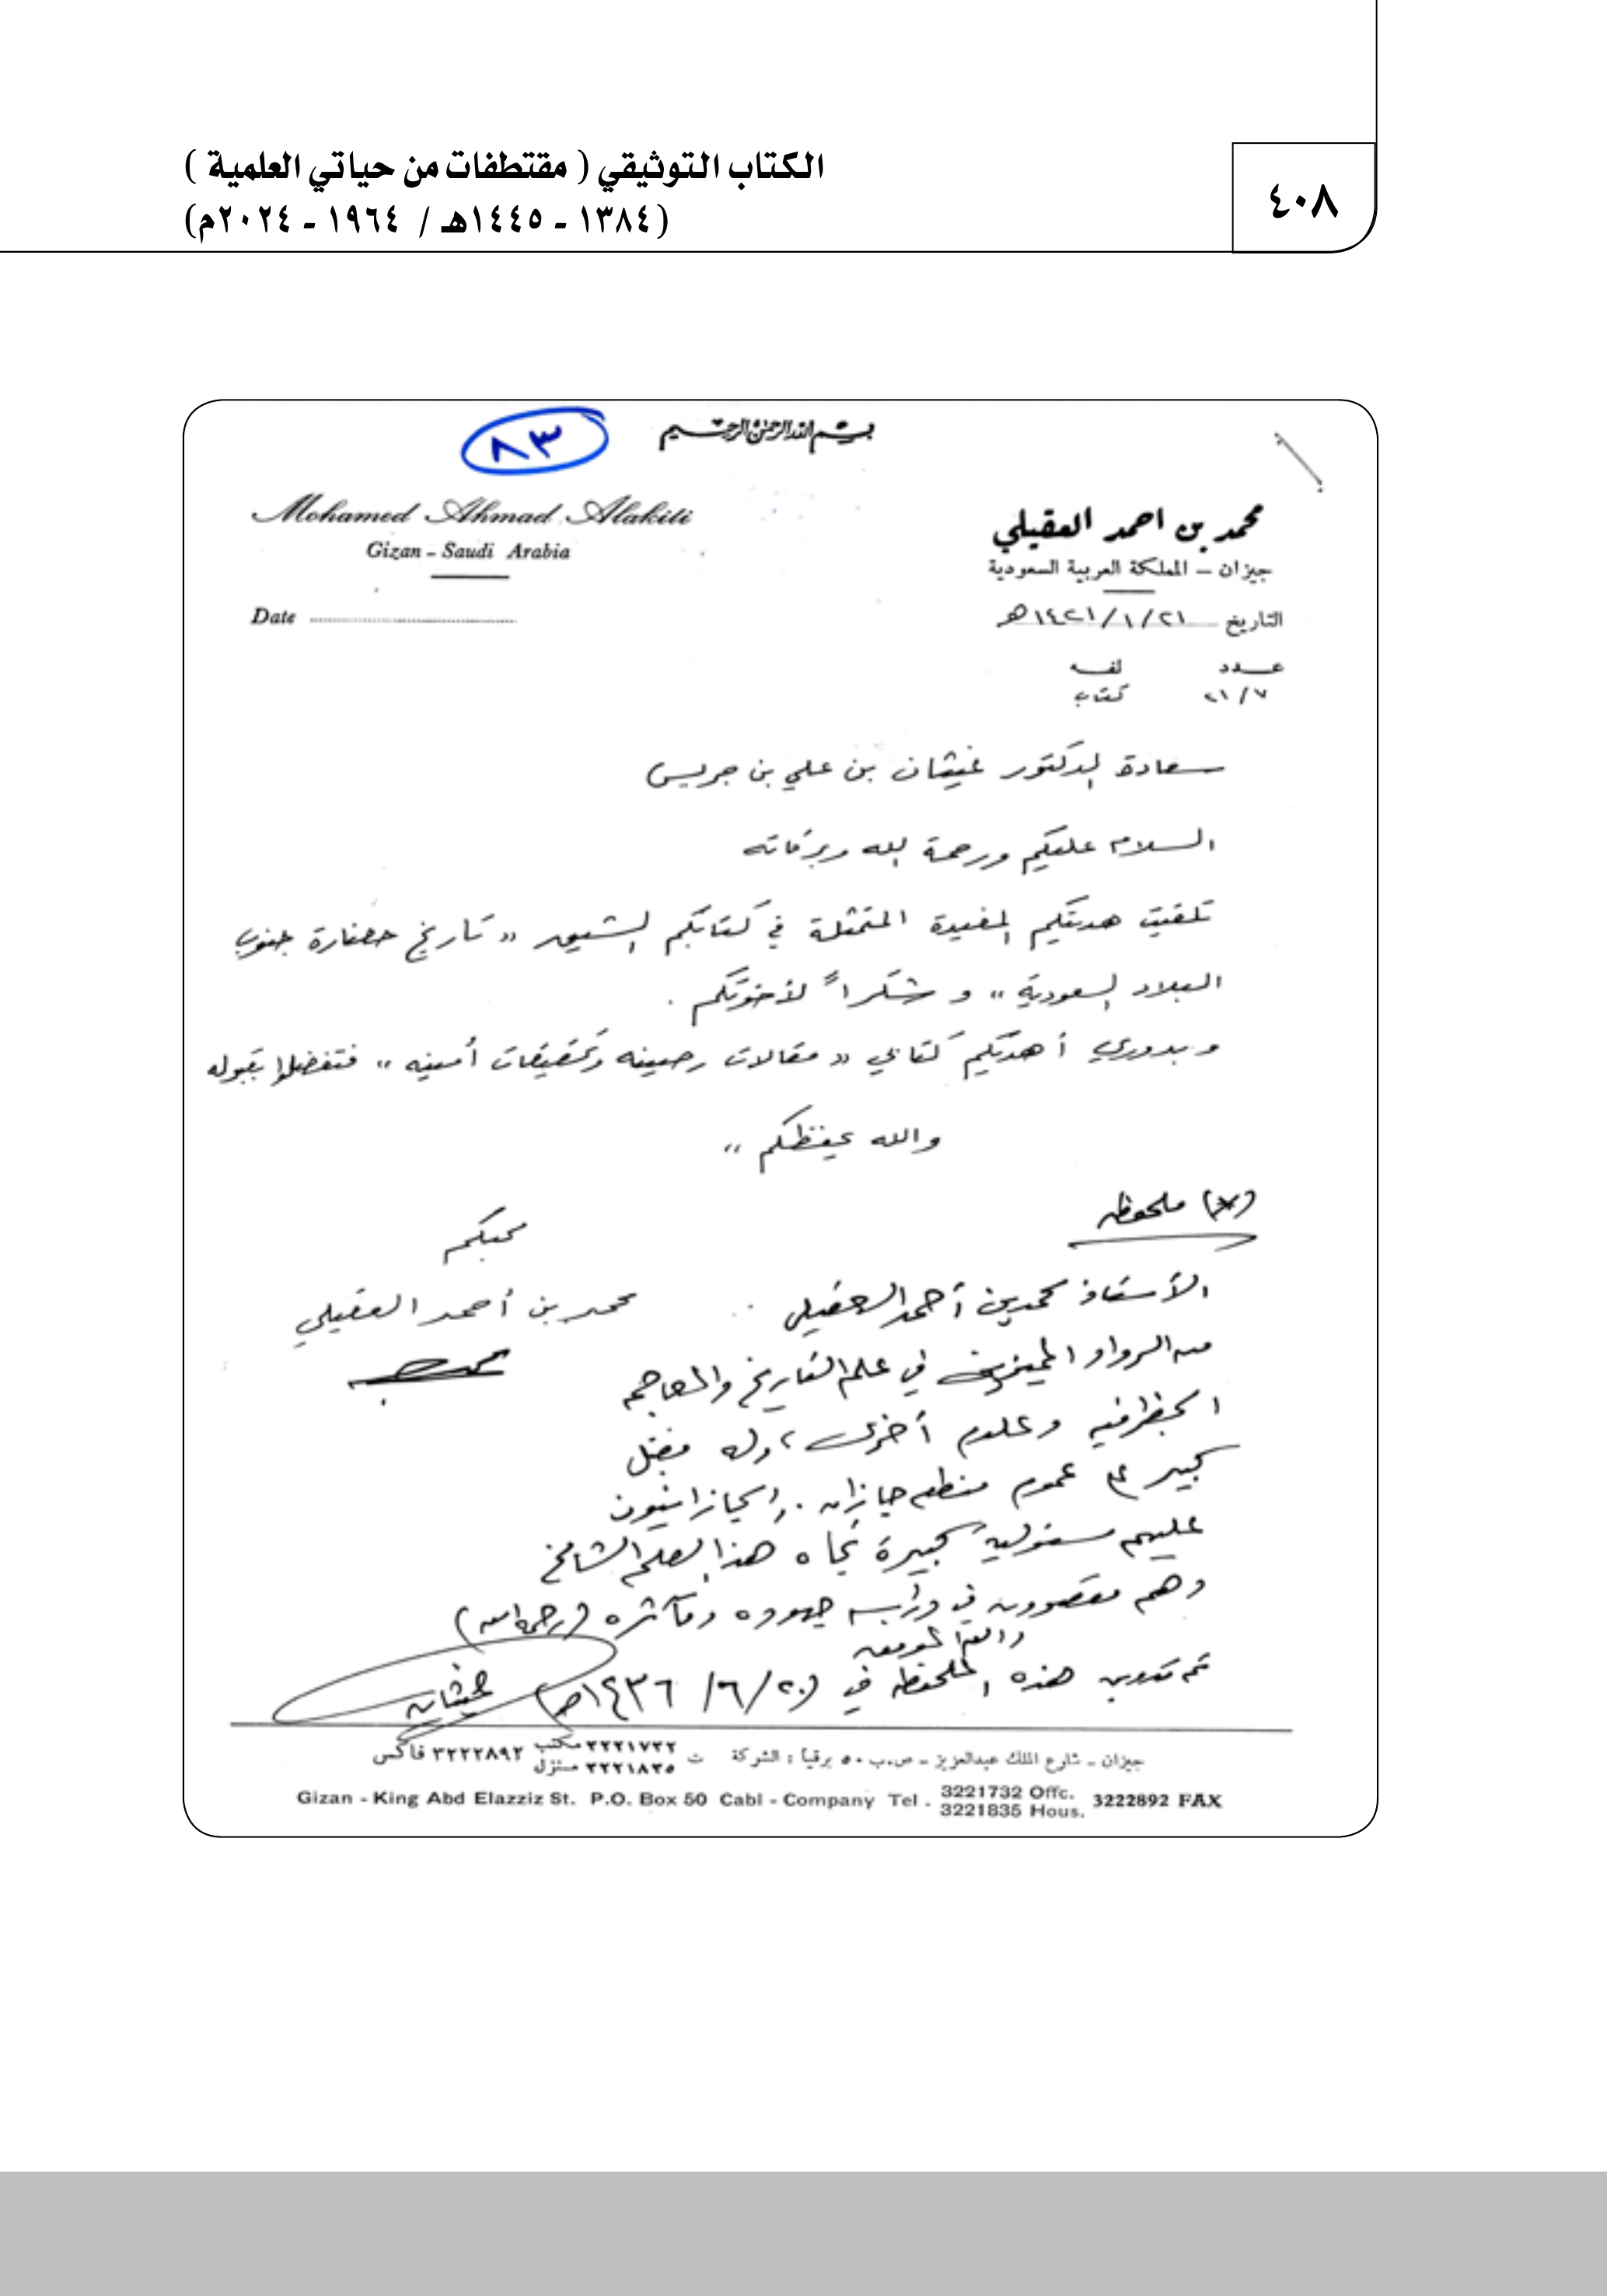 ٤٠٨
الكتاب التوثيقي ( مقتطفات من حياتي العلمية )
(١٣٨٤ - ١٤٤٥هـ / ١٩٦٤ - ٢٠٢٤م)
بسم الله الرحمن الرحيم
٨٣
محمد بن احمد العقيلي
جيزان – المملكة العربية السعودية
Mohamed Ahmad Alakili
Gizan – Saudi Arabia
التاريخ ١٤٢١/١/٢١هـ
Date
عدد لفه
٢١/٧ كتاب
سعادة الدكتور غيثان بن علي بن جريس
السلام عليكم ورحمة الله وبركاته
تلقيت هديتكم المفيدة المتمثلة في كتابكم الشيق « تاريخ حضارة جنوب
البلاد السعودية » و شكراً لأخوتكم .
وبدوري أهديكم كتابي « مقالات رصينه وتحقيقات أمينه » فتفضلوا بقبوله
والله يحفظكم ،،
محبكم
محمد بن أحمد العقيلي
(*) ملحوظه
الأستاذ محمد بن أحمد العقيلي
من الرواد المميزين في علم التاريخ والمعاجم
الجغرافيه وعلوم أخرى ، وله فضل
كبير على عموم منطقه جازان . والجازانيون
عليهم مسئوليه كبيرة تجاه هذا العلم الشامخ
وهم مقصرون في دراسه جهوده ومآثره (رحمه الله)
والله الموفق
تم تدوين هذه الملحوظه في (٢٠/ ٦/ ١٤٣٦هـ)
غيثان
جيزان – شارع الملك عبدالعزيز – ص.ب ٥٠ برقيا : الشركة ت ٣٢٢١٧٣٢ مكتب ٣٢٢٢٨٩٢ فاكس
٣٢٢١٨٣٥ منزل
Gizan - King Abd Elazziz St. P.O. Box 50 Cabl - Company Tel . 3221732 Offc. 3222892 FAX
3221835 Hous.